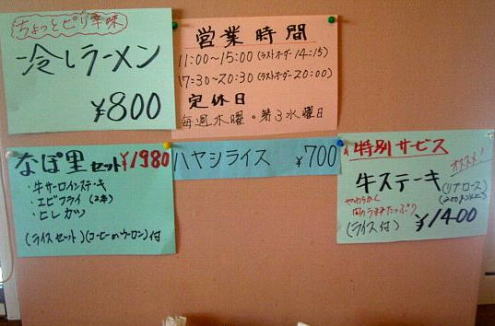 ちょっとピリ辛味
冷しラーメン
¥800
営業時間
11:00~15:00(ラストオーダー14:15)
17:30~20:30(ラストオーダー20:00)
定休日
毎週木曜・第3水曜日
なぽ里セット¥1980
・牛サーロインステーキ
・エビフライ(2本)
・ヒレカツ
(ライスセット)(コーヒーorウーロン)付
ハヤシライス ¥700
特別サービス
オススメ!
牛ステーキ
(リブロース)
やわらかく
肉のうまみたっぷり
(ライス付)
¥1400